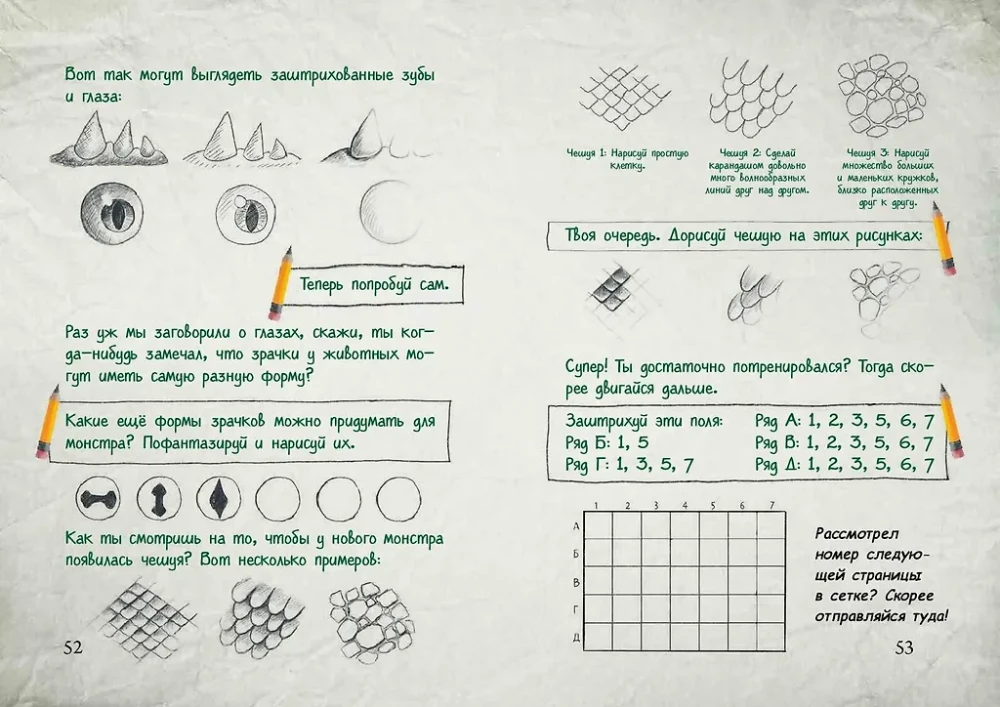 Вот так могут выглядеть заштрихованные зубы
и глаза:
Теперь попробуй сам.
Раз уж мы заговорили о глазах, скажи, ты ког–
да–нибудь замечал, что зрачки у животных мо–
гут иметь самую разную форму?
Какие ещё формы зрачков можно придумать для
монстра? Пофантазируй и нарисуй их.
Как ты смотришь на то, чтобы у нового монстра
появилась чешуя? Вот несколько примеров:
52
Чешуя 1: Нарисуй простую
клетку.
Чешуя 2: Сделай
карандашом довольно
много волнообразных
линий друг над другом.
Чешуя 3: Нарисуй
множество больших
и маленьких кружков,
близко расположенных
друг к другу.
Твоя очередь. Дорисуй чешую на этих рисунках:
Супер! Ты достаточно потренировался? Тогда ско–
рее двигайся дальше.
Заштрихуй эти поля:
Ряд А: 1, 2, 3, 5, 6, 7
Ряд Б: 1, 5
Ряд В: 1, 2, 3, 5, 6, 7
Ряд Г: 1, 3, 5, 7
Ряд Д: 1, 2, 3, 5, 6, 7
1 2 3 4 5 6 7
А
Б
В
Г
Д
Рассмотрел
номер следую–
щей страницы
в сетке? Скорее
отправляйся туда!
53